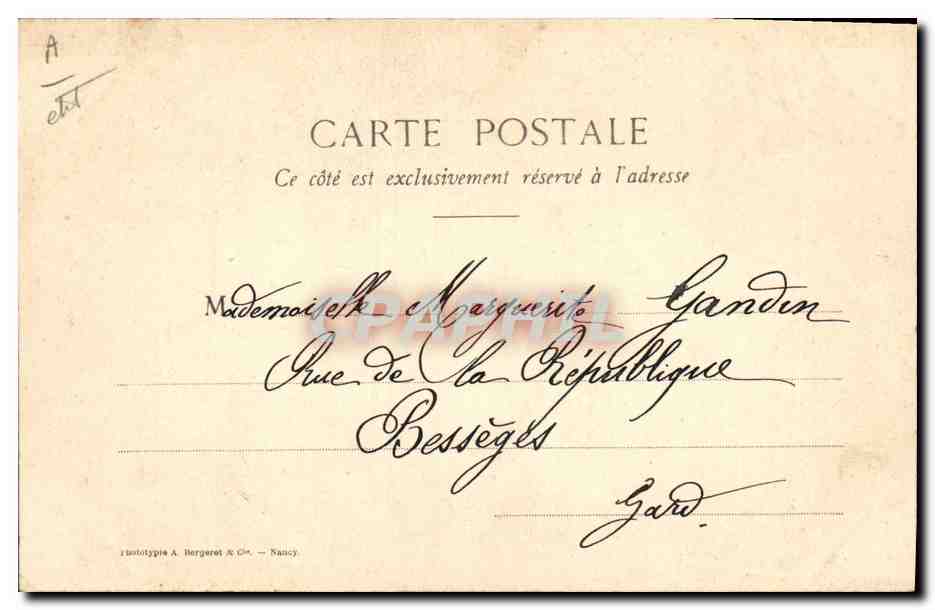 A
CARTE POSTALE
Ce côté est exclusivement réservé à l'adresse
Mademoiselle Marguerite Gandin
CPAPHIL
Rue de la République
Bessèges
Gard.
Phototypie A. Bergeret & Cie. — Nancy.